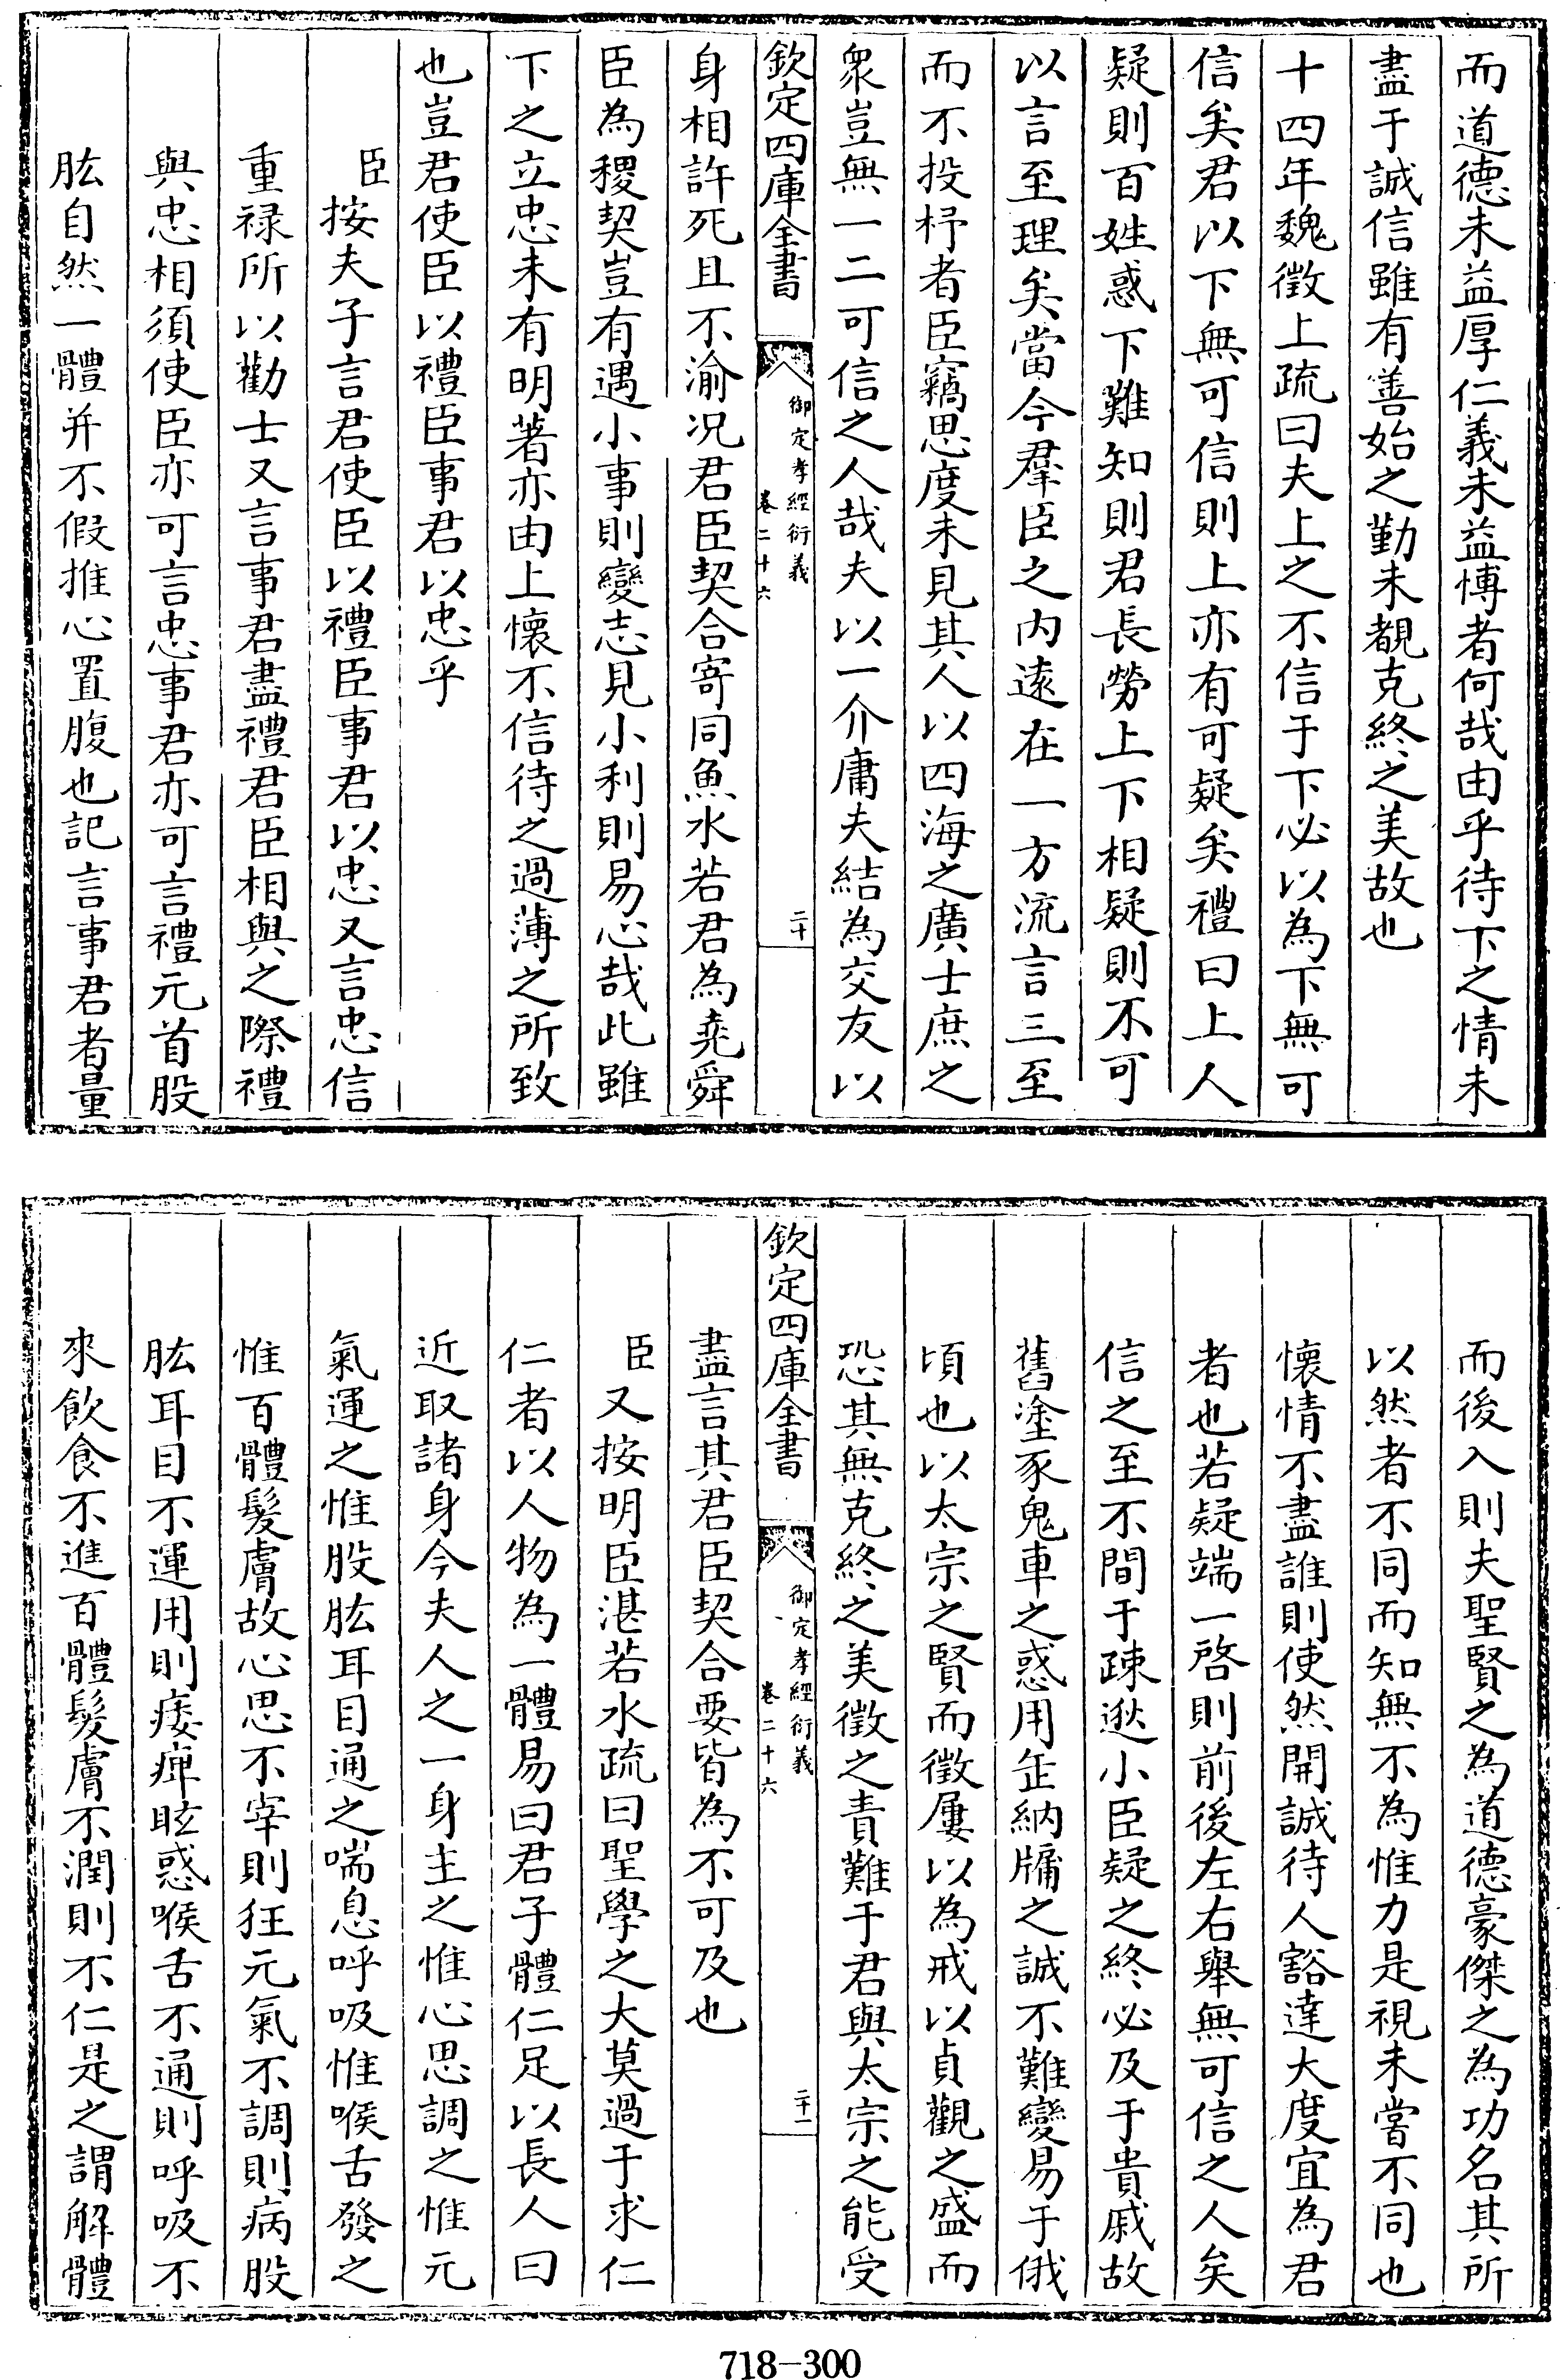 而道德未益厚仁義未益博者何哉由乎待下之情未
盡于誠信雖有善始之勤未覩克終之美故也
十四年魏徵上疏曰夫上之不信于下必以為下無可
信矣君以下無可信則上亦有可疑矣禮曰上人
疑則百姓惑下難知則君長勞上下相疑則不可
以言至理矣當今羣臣之内遠在一方流言三至
而不投杼者臣竊思度未見其人以四海之廣士庶之
衆豈無一二可信之人哉夫以一介庸夫結為交友以
欽定四庫全書
御定孝經衍義
卷二十六
二十
身相許死且不渝况君臣契合寄同魚水若君為堯舜
臣為稷契豈有遇小事則變志見小利則易心哉此雖
下之立忠未有明著亦由上懷不信待之過薄之所致
也豈君使臣以禮臣事君以忠乎
臣按夫子言君使臣以禮臣事君以忠又言忠信
重禄所以勸士又言事君盡禮君臣相與之際禮
與忠相須使臣亦可言忠事君亦可言禮元首股
肱自然一體并不假推心置腹也記言事君者量
而後入則夫聖賢之為道德豪傑之為功名其所
以然者不同而知無不為惟力是視未嘗不同也
懷情不盡誰則使然開誠待人豁達大度宜為君
者也若疑端一啓則前後左右舉無可信之人矣
信之至不間于疎逖小臣疑之終必及于貴戚故
舊塗豕鬼車之惑用缶納牖之誠不難變易于俄
頃也以太宗之賢而徵屢以為戒以貞觀之盛而
恐其無克終之美徵之責難于君與太宗之能受
欽定四庫全書
御定孝經衍義
卷二十六
二十一
盡言其君臣契合要皆為不可及也
臣又按明臣湛若水疏曰聖學之大莫過于求仁
仁者以人物為一體易曰君子體仁足以長人曰
近取諸身今夫人之一身主之惟心思調之惟元
氣運之惟股肱耳目通之喘息呼吸惟喉舌發之
惟百體髮膚故心思不宰則狂元氣不調則病股
肱耳目不運用則痿痺眩惑喉舌不通則呼吸不
來飲食不進百體髮膚不潤則不仁是之謂解體
718-300